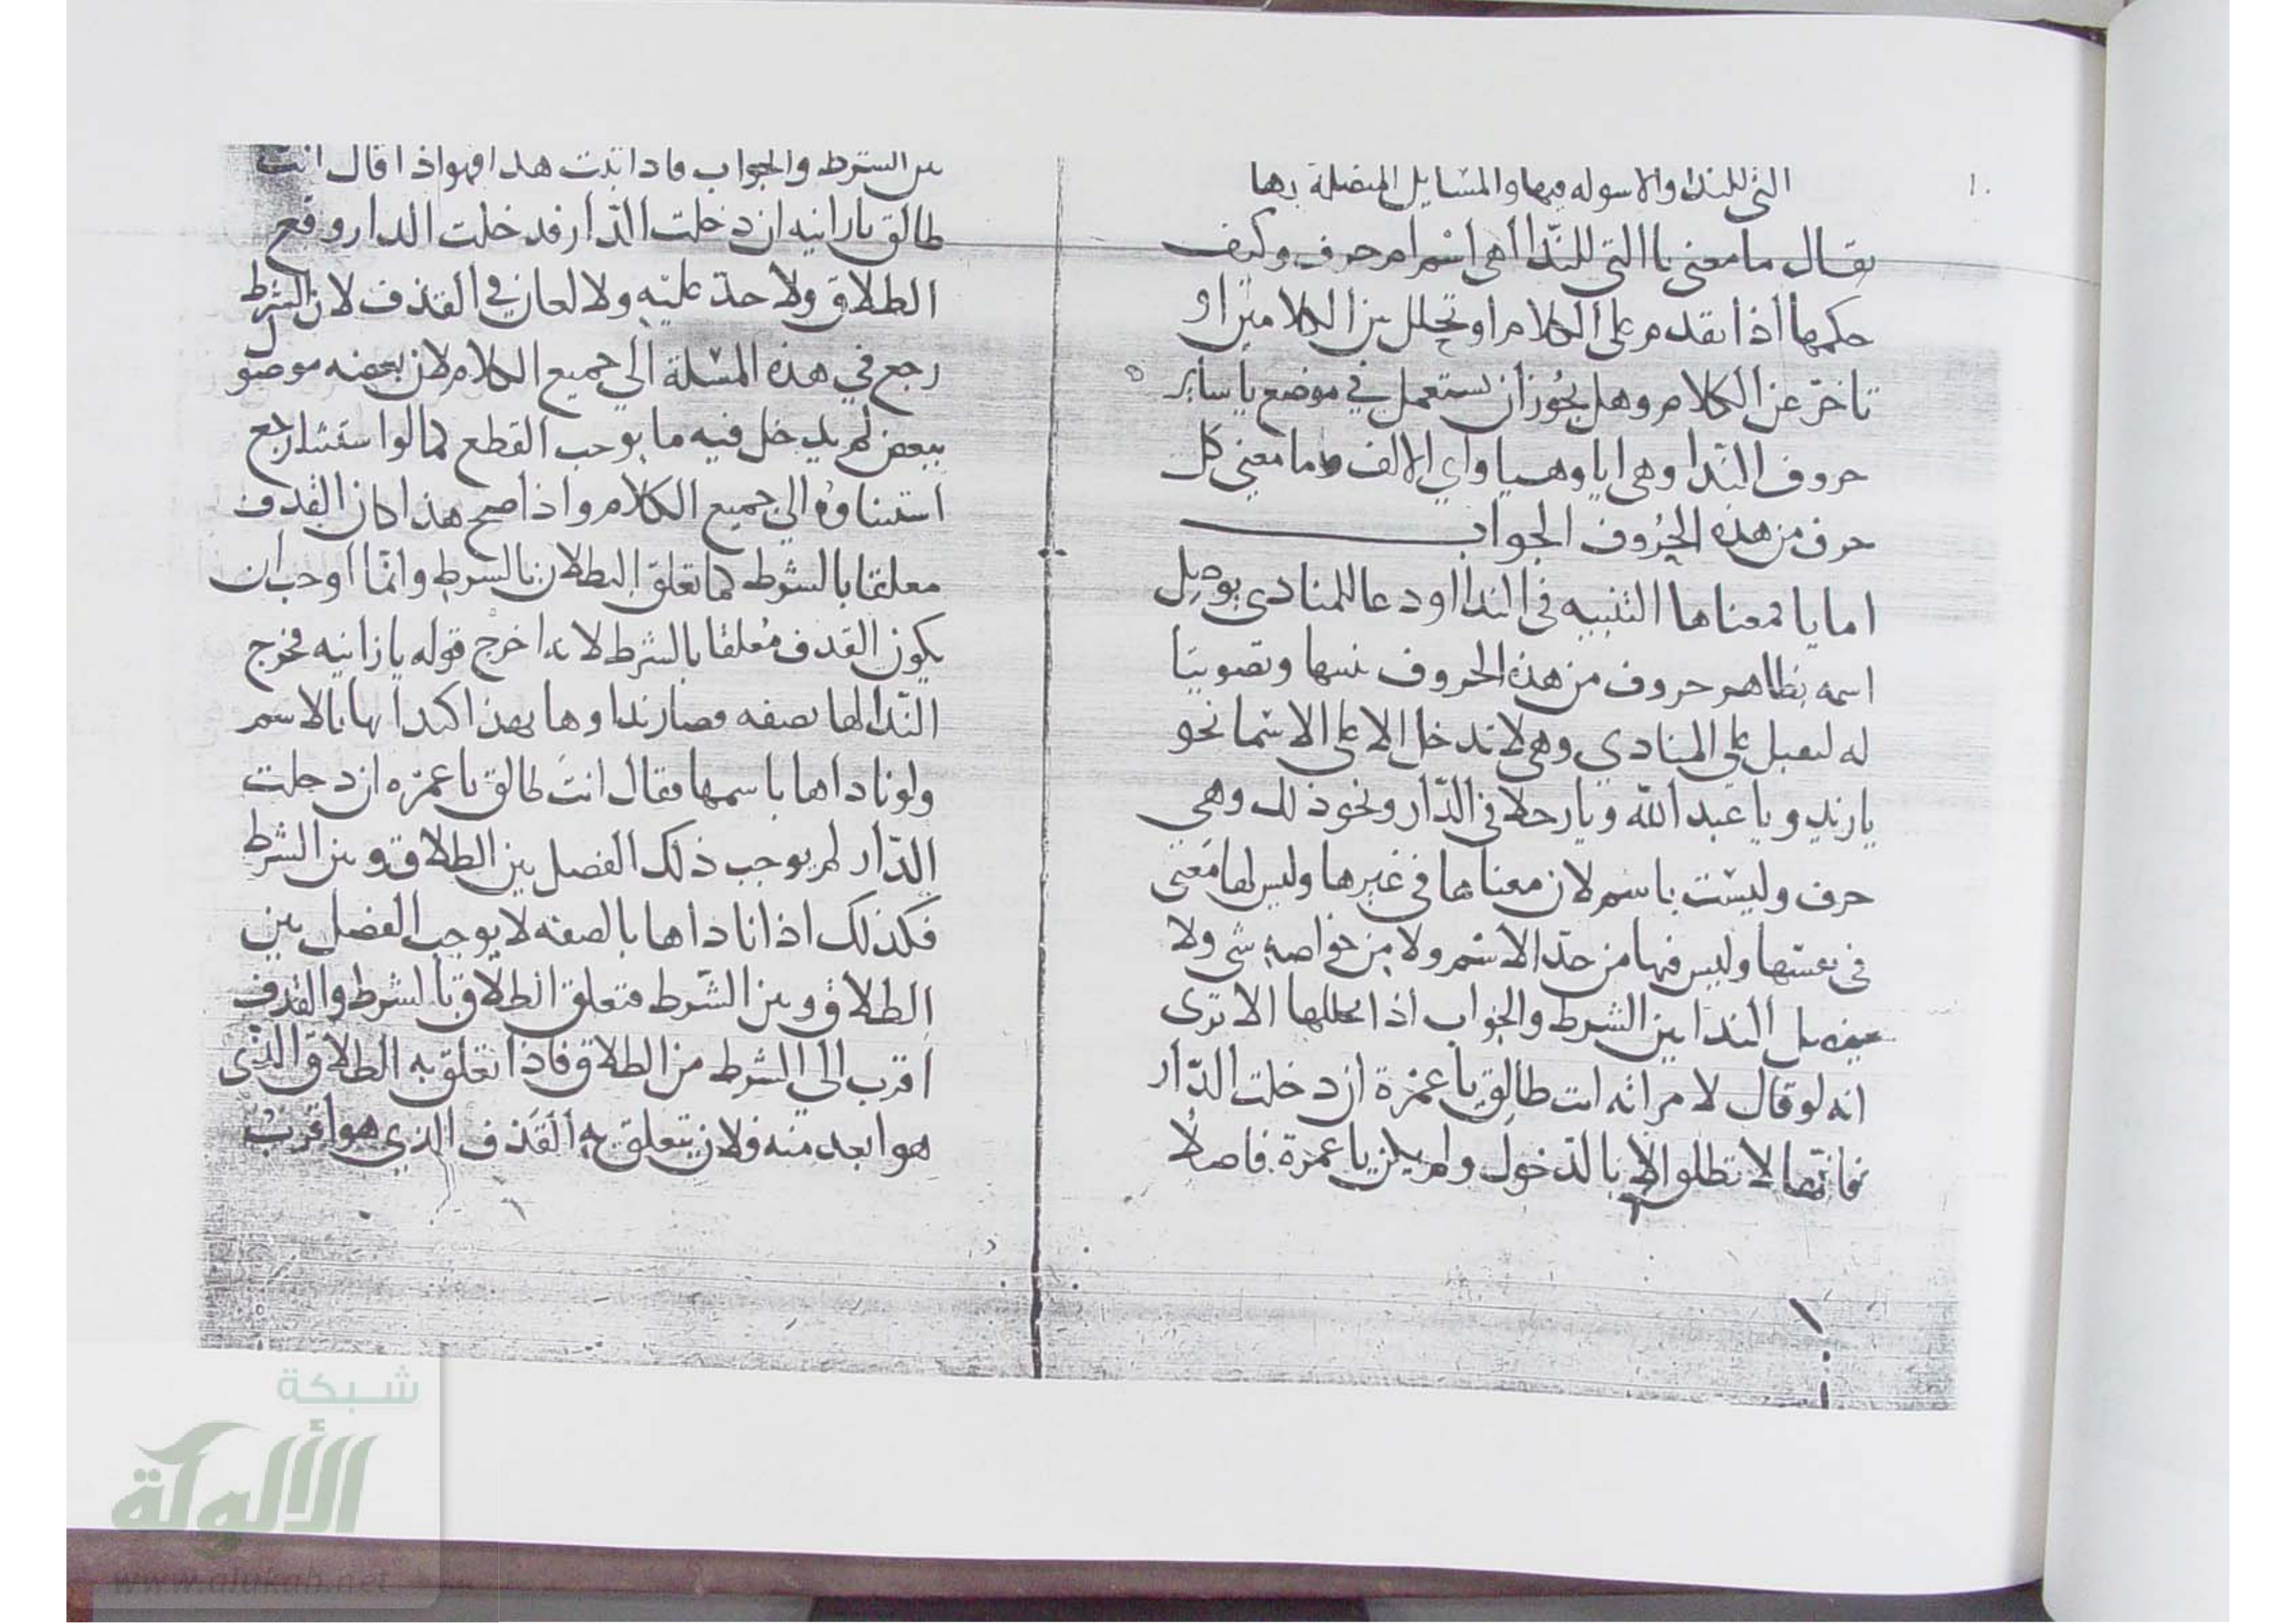 ١٠
التي للندا والاسوله فيها والمسايل المتصلة بها
يقال ما معنى يا التي للنّدا أهي اسْم ام حرف وكيف
حكمها اذا تقدم على الكلام او تخلل بين الكلامين او
تاخر عن الكلام وهل يجُوز ان يستعمل في موضع يا ساير
حروف النّدا وهي ايا وهيا واي والالف وما معنى كل
حرف من هذه الحُروف الجواب
اما يا فمعناها التنبيه في الندا او دعا للمنادى بوصل
اسمه بظاهر حروف من هذه الحروف وتصويتا
له ليقبل على المنادي وهي لا تدخل الا على الاسما نحو
يا زيد ويا عبد الله ويا رجلا في الدّار ونحو ذلك وهي
حرف وليست باسم لان معناها في غيرها وليس لها معنى
في نفسها وليس فيها من حدّ الاسْم ولا من خواصه شي ولا
يفصل الندا بين الشرط والجواب اذا تخللها الا ترى
انه لو قال لامراته انت طالق يا عمرة ان دخلت الدّار
فانها لا تطلق الا بالدّخول ولم يكن يا عمرة فاصلا
بين الشرط والجواب فاذا ثبت هذا فهو اذا قال انت
طالق يا زانيه ان دخلت الدّار فدخلت الدار وقع
الطلاق ولا حدّ عليْه ولا لعان في القذف لان الشرط
رجع في هذه المسْلة الي جميع الكلام لان بعضه موصول
ببعض لم يدخل فيه ما يوجب القطع كما لو استثنا رجع
استثناوُه الي جميع الكلام واذا صح هذا كان القذف
معلقا بالشرط كما تعلق الطلاق بالشرط وانّما اوجب ان
يكون القذف مُعلقا بالشرط لانه اخرج قوله يا زانيه مخرج
النّدا لها بصفه فصار نداوها بهذا كندايها بالاسم
ولو ناداها باسمها فقال انتَ طالق يا عمره ان دخلت
الدّار لم يوجب ذلك الفصل بين الطلاق وبين الشرط
فكذلك اذا ناداها بالصفه لا يوجب الفصل بين
الطلاق وبين الشّرط فتعلق الطلاق بالشرط والقذف
اقرب الى الشرط من الطلاق فاذا تعلق به الطلاق الذي
هو ابعد منه فلان يتعلق به القَذف الذي هو اقرب
شبكة
الألوكة
www.alukah.net